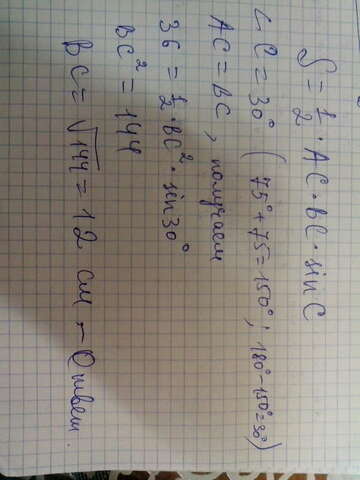 S = 1/2 · AC · BC · sin C
∠C = 30° (75° + 75 = 150° ; 180° - 150° = 30°)
AC = BC , получаем
36 = 1/2 · BC² · sin 30°
BC² = 144
BC = √144 = 12 см – Ответ.